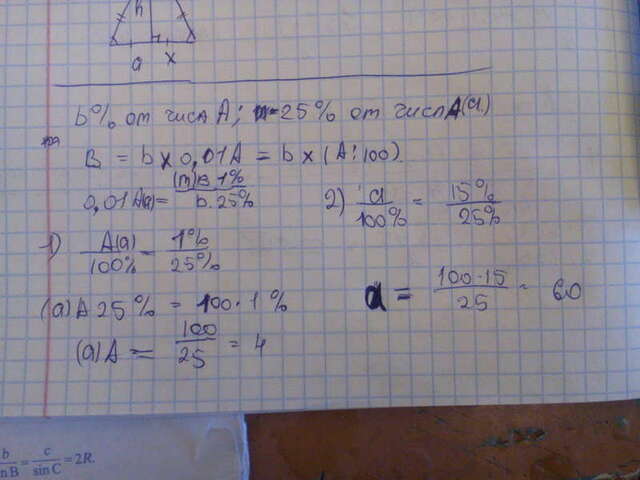 h
a x
b% от числа A; m - 25% от числа A(a)
B = b x 0,01A = b x (A:100)
0,01A(a) = (m)B 1% / b. 25%
2) a / 100% = 15% / 25%
1) A(a) / 100% = 1% / 25%
(a)A 25% = 100 · 1%
a = 100 · 15 / 25 = 60
(a)A = 100 / 25 = 4
b / in B = c / sin C = 2R.